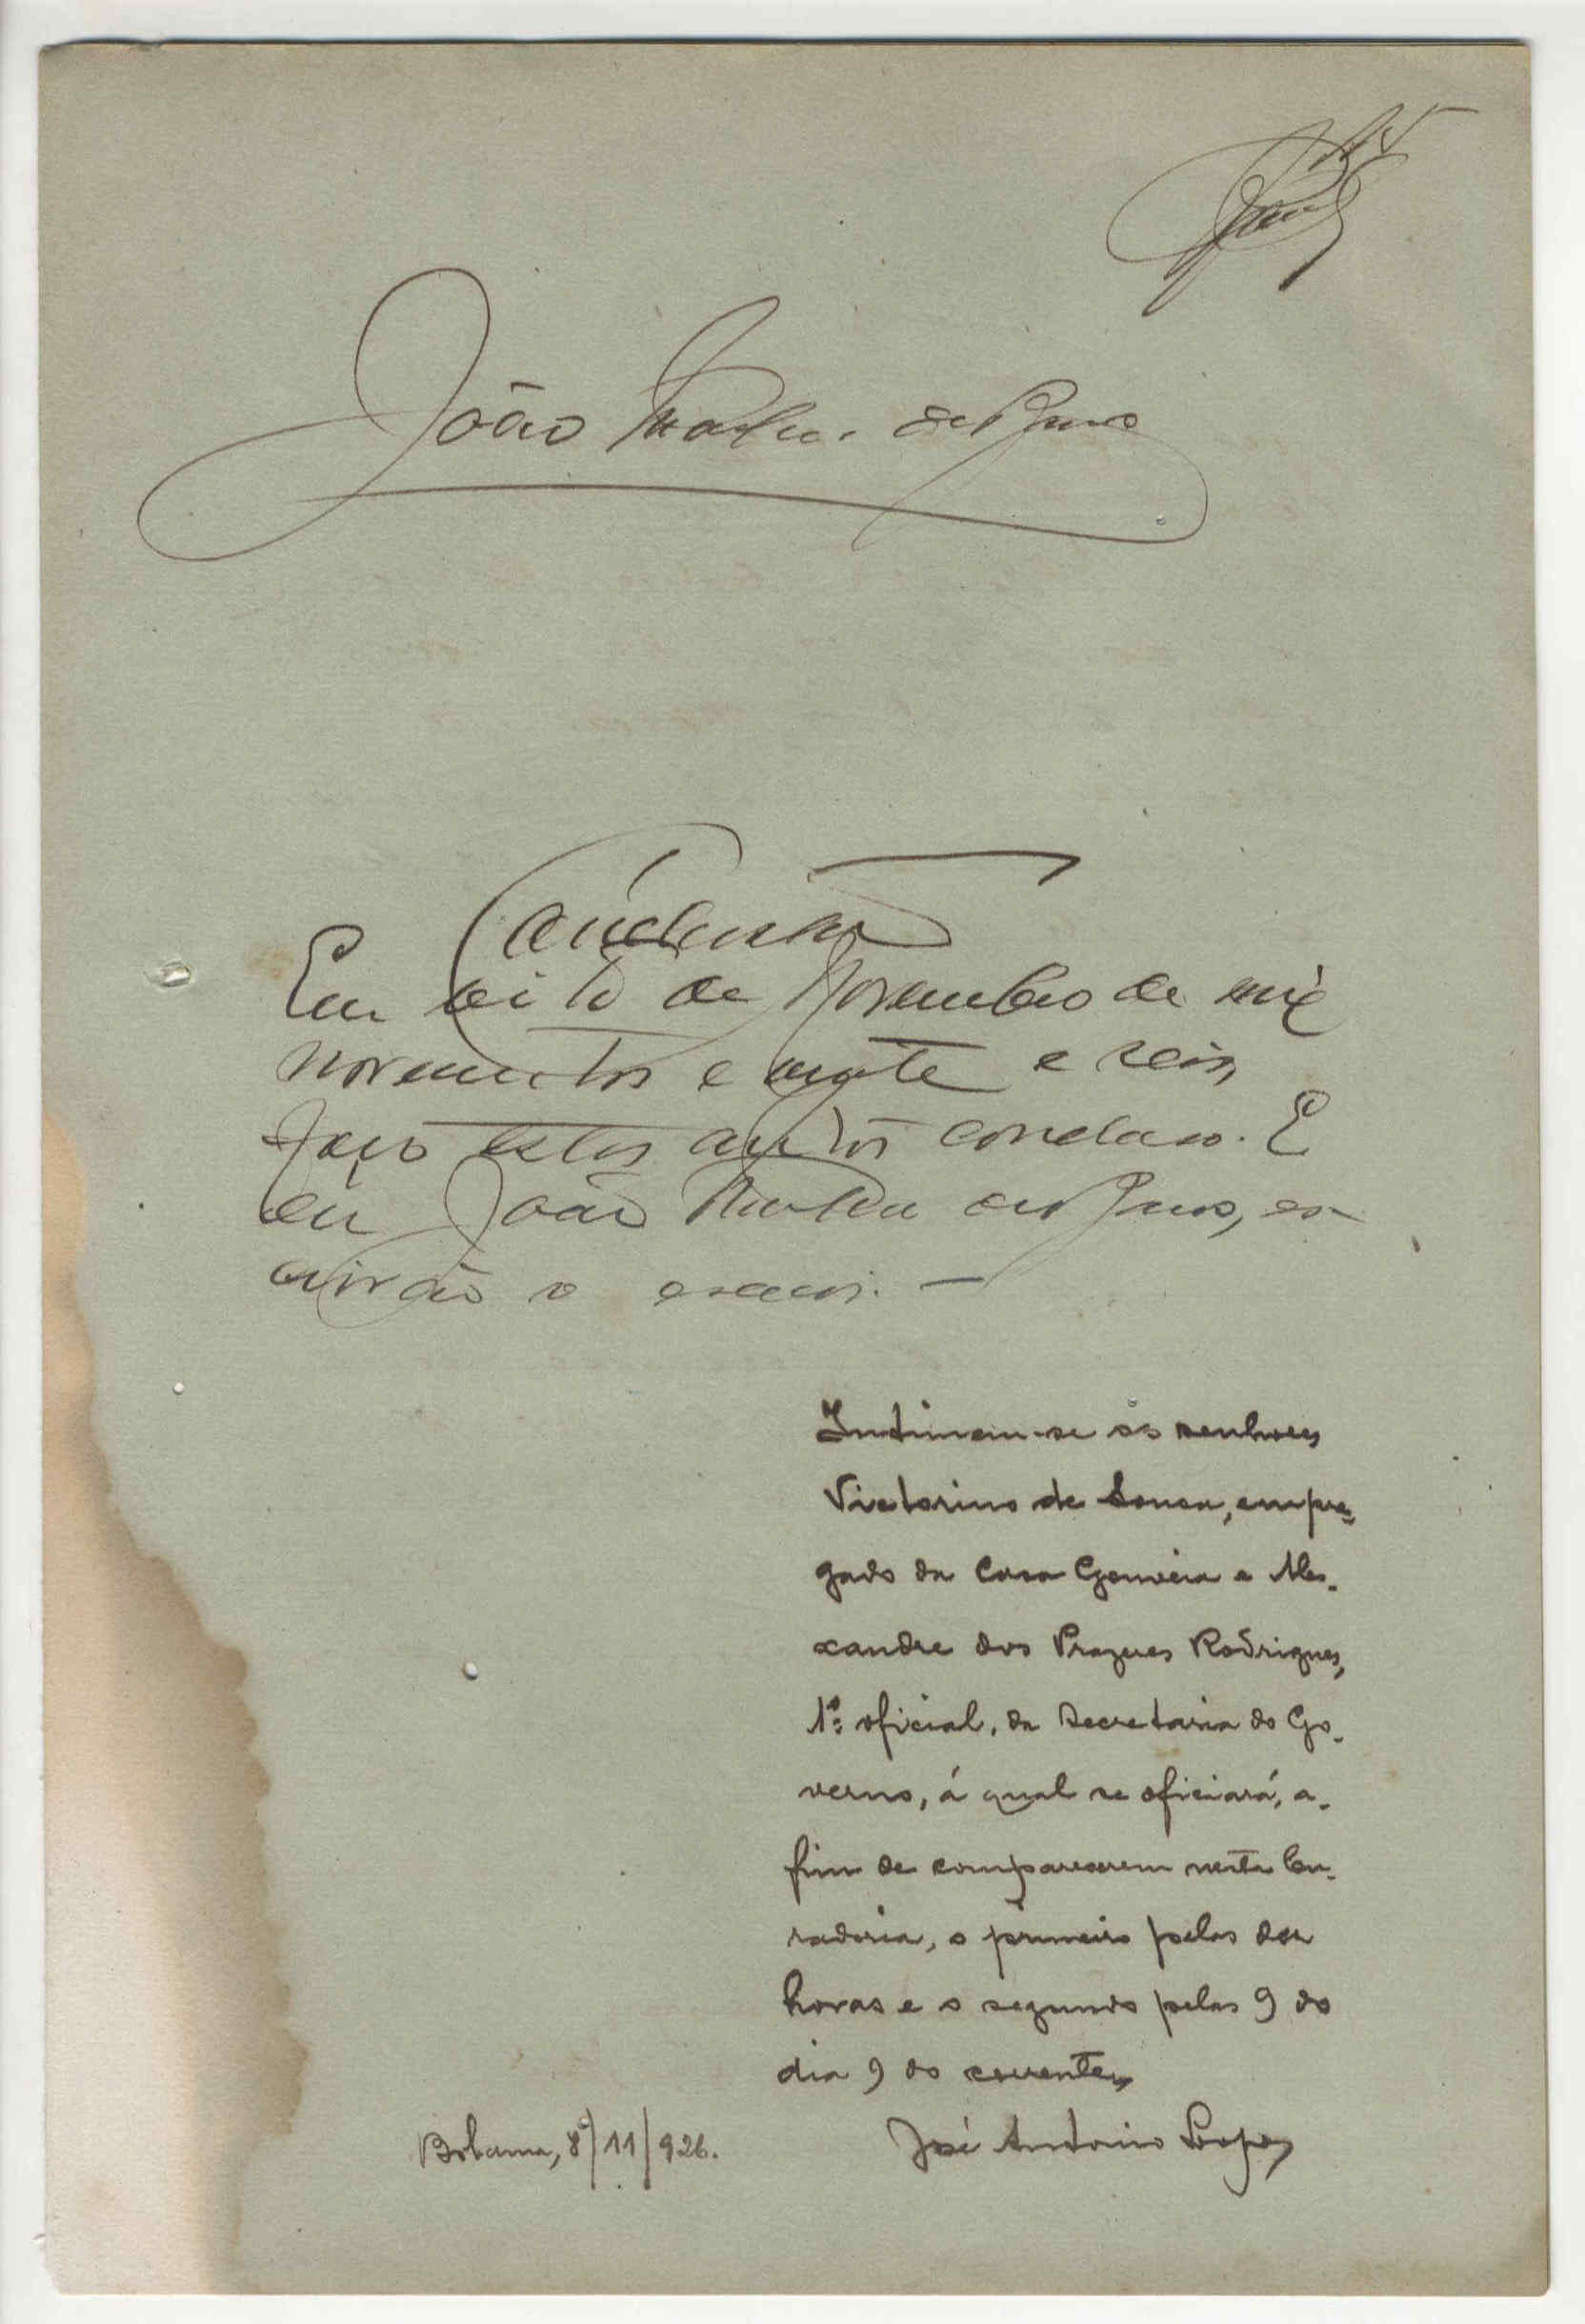 João
Em oito de Novembro de mil
novecentos e vinte e seis,
faço estes autos concluso. E
eu João, es-
crivão o escrevi. —
Intimem-se os senhores
Victorino de Sousa, empre-
gado da Casa Gouveia e Ale-
xandre dos Prazeres Rodrigues,
1º oficial, da Secretaria do Go-
verno, á qual se oficiará, a-
fim de comparecerem nesta Cu-
radoria, o primeiro pelas dez
horas e o segundo pelas 9 do
dia 9 do corrente
Bolama, 8/11/926.
José Antonio Lopes